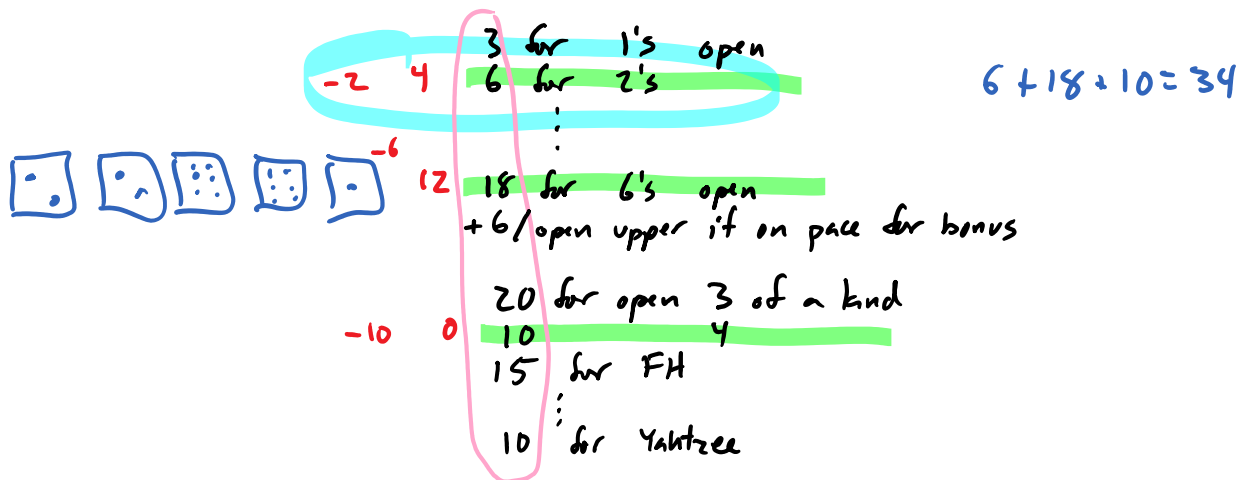 3 for 1's open
-2 4 6 for 2's
6 + 18 + 10 = 34
-6
12 18 for 6's open
+6/open upper if on pace for bonus
20 for open 3 of a kind
-10 0 10 4
15 for FH
10 for Yahtzee